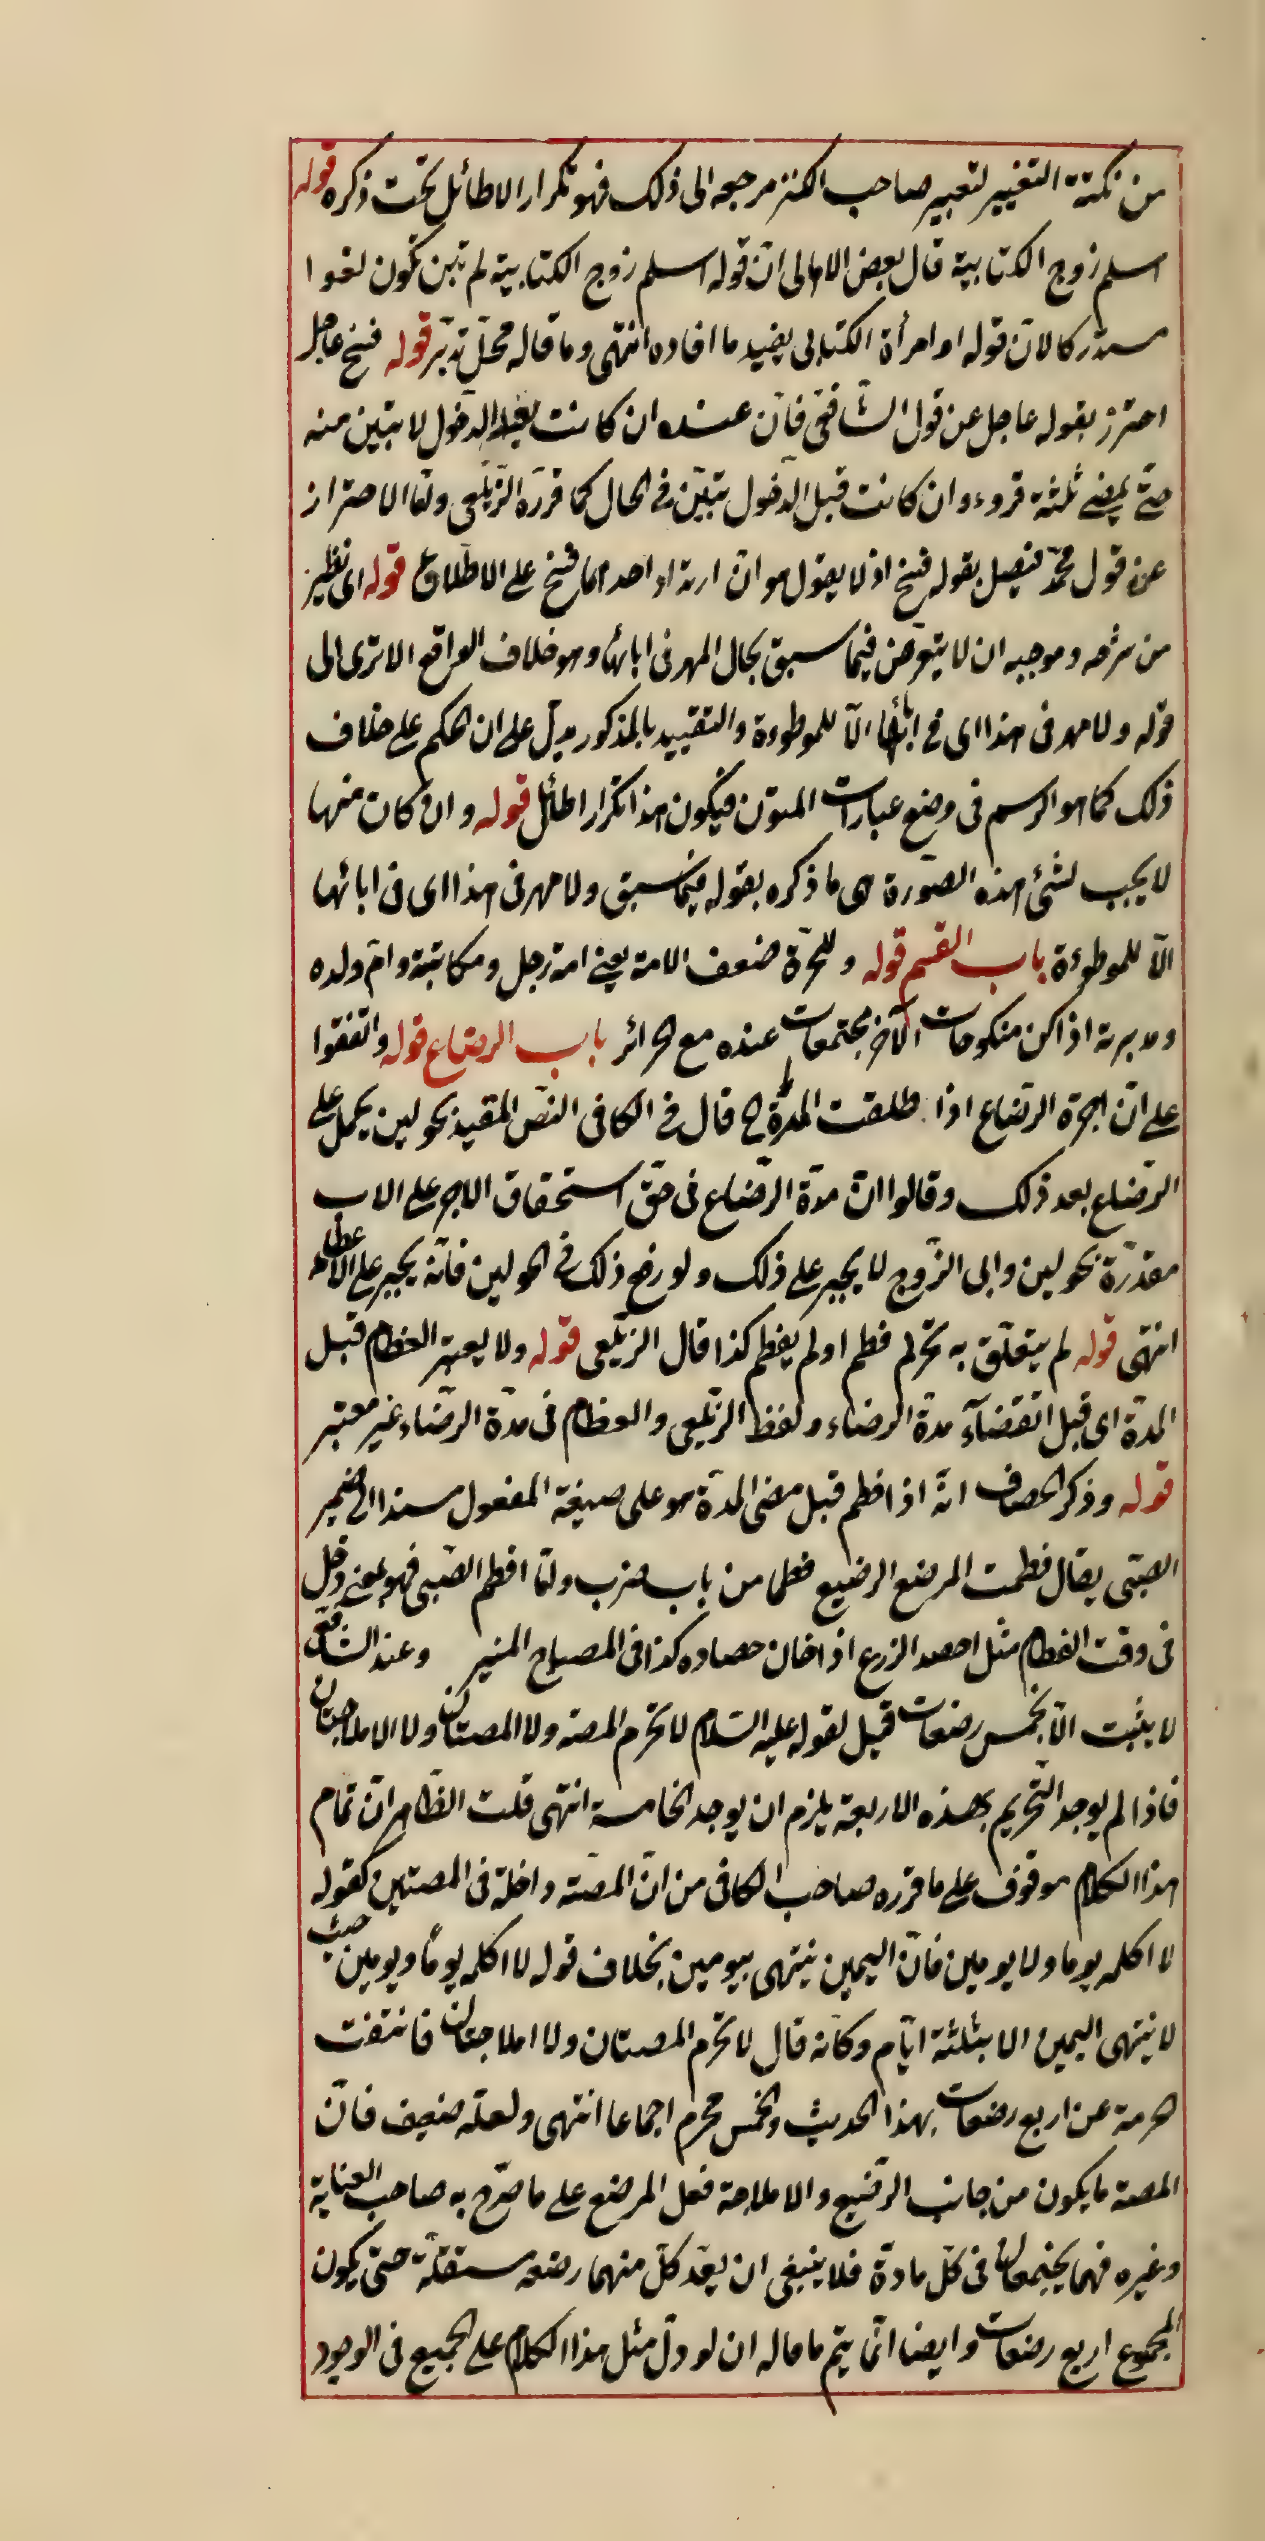 من نكتة التغيير لتعبير صاحب الكنز مرجعه الى ذلك فهو تكرار لا طائل تحت ذكره قوله
اسلم زوج الكتابية قال بعض الاهالى ان قوله اسلم زوج الكتابية لم تبن تكون لغوا
مستدركا لان قوله او امرأة الكتابى يفيد ما افاده انتهى وما قاله محل تدبر قوله فسخ عاجل
احترز بقوله عاجل عن قول الشافعى فان عنده ان كانت بعد الدخول لا تبين منه
حتى يمضى ثلثة قروء وان كانت قبل الدخول تبين فى الحال كما قرره الزيلعى واما الاحتراز
عن قول محمد فيصل بقوله فسخ اذ لا يقول هو ان ارتداد احدهما فسخ على الاطلاق قوله اى نظير
من شرحه وموجبه ان لا يتعرض فيما سبق بحال المهر فى ابائها وهو خلاف الواقع الا ترى الى
قوله ولا مهر فى هذا اى فى ابائها الا للموطوءة والتقييد بالمذكور يدل على ان الحكم على خلاف
ذلك كما هو الرسم فى وضع عبارات المتون فيكون هذا تكرارا طائل قوله وان كان منها
لا يجب لشئ هذه الصورة هى ما ذكره بقوله فيما سبق ولا مهر فى هذا اى فى ابائها
الا للموطوءة باب القسم قوله وللحرة ضعف الامة يعنى امة رجل ومكاتبة وام ولده
ومدبرته اذا كن منكوحات الآخر مجتمعات عنده مع الحرائر باب الرضاع قوله واتفقوا
على ان اجرة الرضاع اذا طلقت المدة ح قال فى الكافى النص المقيد بحولين يحمل على
الرضاع بعد ذلك وقالوا ان مدة الرضاع فى حق استحقاق الاجر على الاب
مقدرة بحولين وابى الزوج لا يجبر على ذلك ولو رضع ذلك فى الحولين فانه يجبر على الاعطاء
انتهى قوله لم يتعلق به تحريم فطم او لم يفطم كذا قال الزيلعى قوله ولا يعتبر الفطام قبل
المدة اى قبل انقضاء مدة الرضاء ولفظ الزيلعى والفطام فى مدة الرضاء غير معتبر
قوله وذكر الخصاف انه اذا فطم قبل مضى المدة هو على صيغة المفعول مسندا الى ضمير
الصبى يقال فطمت المرضع الرضيع فطما من باب ضرب واما افطم الصبى فهو بمعنى دخل
فى وقت الفطام مثل احصد الزرع اذا حان حصاده كذا فى المصباح المنير وعند الشافعى
لا يثبت الا بخمس رضعات قيل لقوله عليه السلام لا تحرم المصة ولا المصتان ولا الاملاجتان
فاذا لم يوجد التحريم بهذه الاربعة يلزم ان يوجد الخامسة انتهى قلت الظاهر ان تمام
هذا الكلام موقوف على ما قرره صاحب الكافى من ان المصة داخلة فى المصتين كقوله
لا اكلمه يوما ولا يومين فان اليمين ينتهى بيومين بخلاف قوله لا اكلمه يوما ويومين حيث
لا ينتهى اليمين الا بثلثة ايام وكانه قال لا تحرم المصتان ولا املاجتان فانتفت
حرمة عن اربع رضعات بهذا الحديث والخمس محرم اجماعا انتهى ولعله ضعيف فان
المصة ما يكون من جانب الرضيع والاملاجة فعل المرضع على ما صرح به صاحب العناية
وغيره فهما يجتمعان فى كل مادة فلا ينبغى ان يعد كل منهما رضعه مستقلة حتى يكون
المجموع اربع رضعات وايضا انما يتم ما قاله ان لو دل مثل هذا الكلام على الجميع فى الوجود